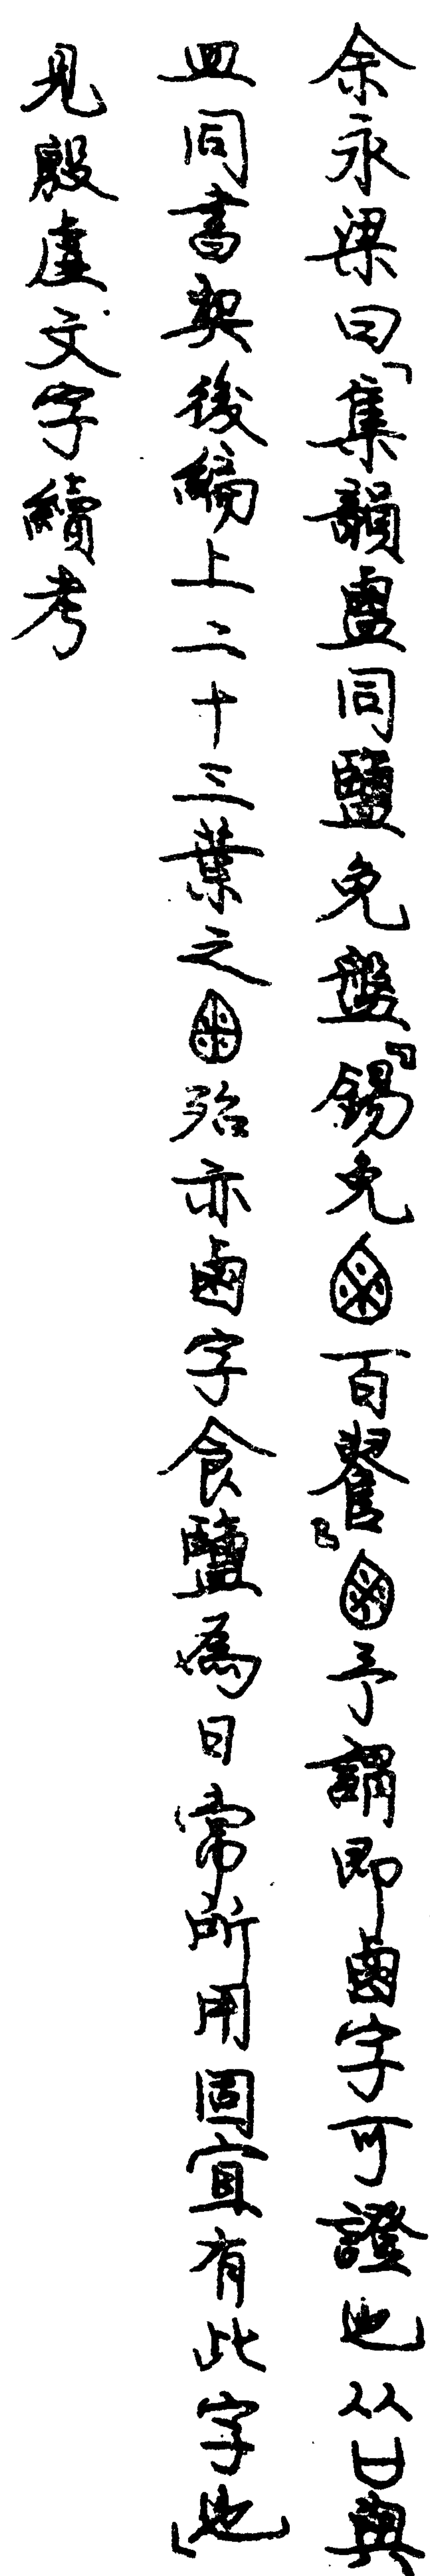 余永梁曰「集韻𥁕同鹽免盤『錫免百』予謂即鹵字可證也从口與
皿同書契後編上二十三葉之殆亦鹵字食鹽為日常所用固宜有此字也」
見殷虛文字續考